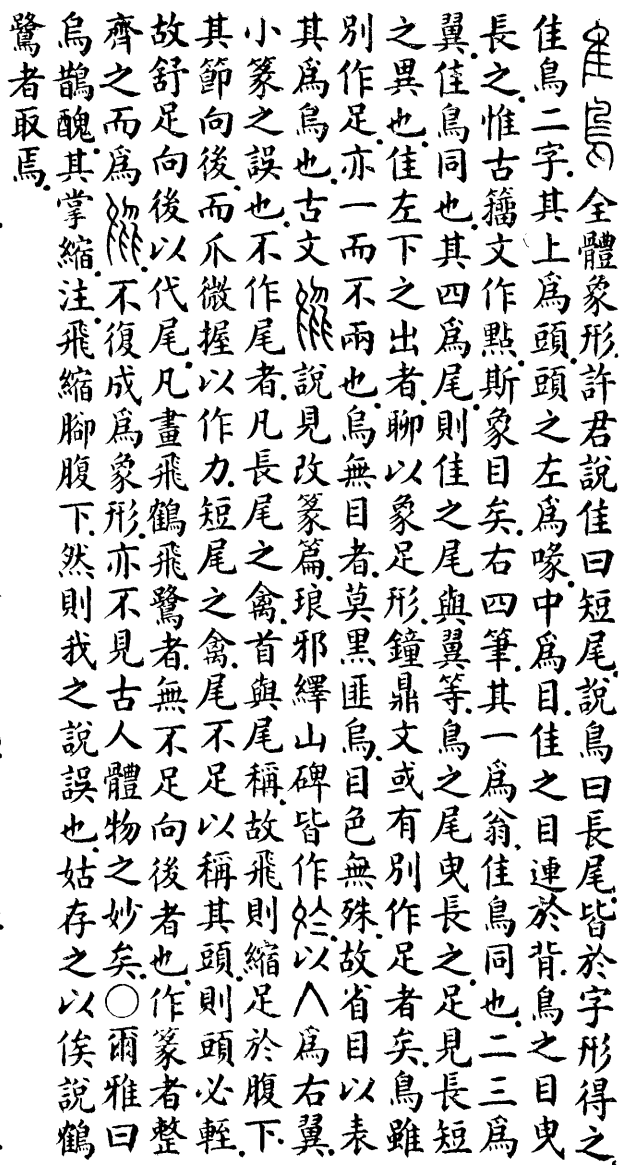 隹鳥全體象形許君說隹曰短尾說鳥曰長尾皆於字形得之
隹鳥二字其上爲頭頭之左爲喙中爲目隹之目連於背鳥之目曳
長之惟古籀文作點斯象目矣右四筆其一爲翁隹鳥同也二三爲
翼隹鳥同也其四爲尾則隹之尾與翼等鳥之尾曳長之足見長短
之異也隹左下之出者聊以象足形鐘鼎文或有別作足者矣鳥雖
別作足亦一而不兩也烏無目者莫黑匪烏目色無殊故省目以表
其爲烏也古文說見改篆篇琅邪繹山碑皆作以人爲右翼
小篆之誤也不作尾者凡長尾之禽首與尾稱故飛則縮足於腹下
其節向後而爪微握以作力短尾之禽尾不足以稱其頭則頭必輊
故舒足向後以代尾凡畫飛鶴飛鷺者無不足向後者也作篆者整
齊之而爲不復成爲象形亦不見古人體物之妙矣〇爾雅曰
烏鵲醜其掌縮注飛縮腳腹下然則我之說誤也姑存之以俟說鶴
鷺者取焉